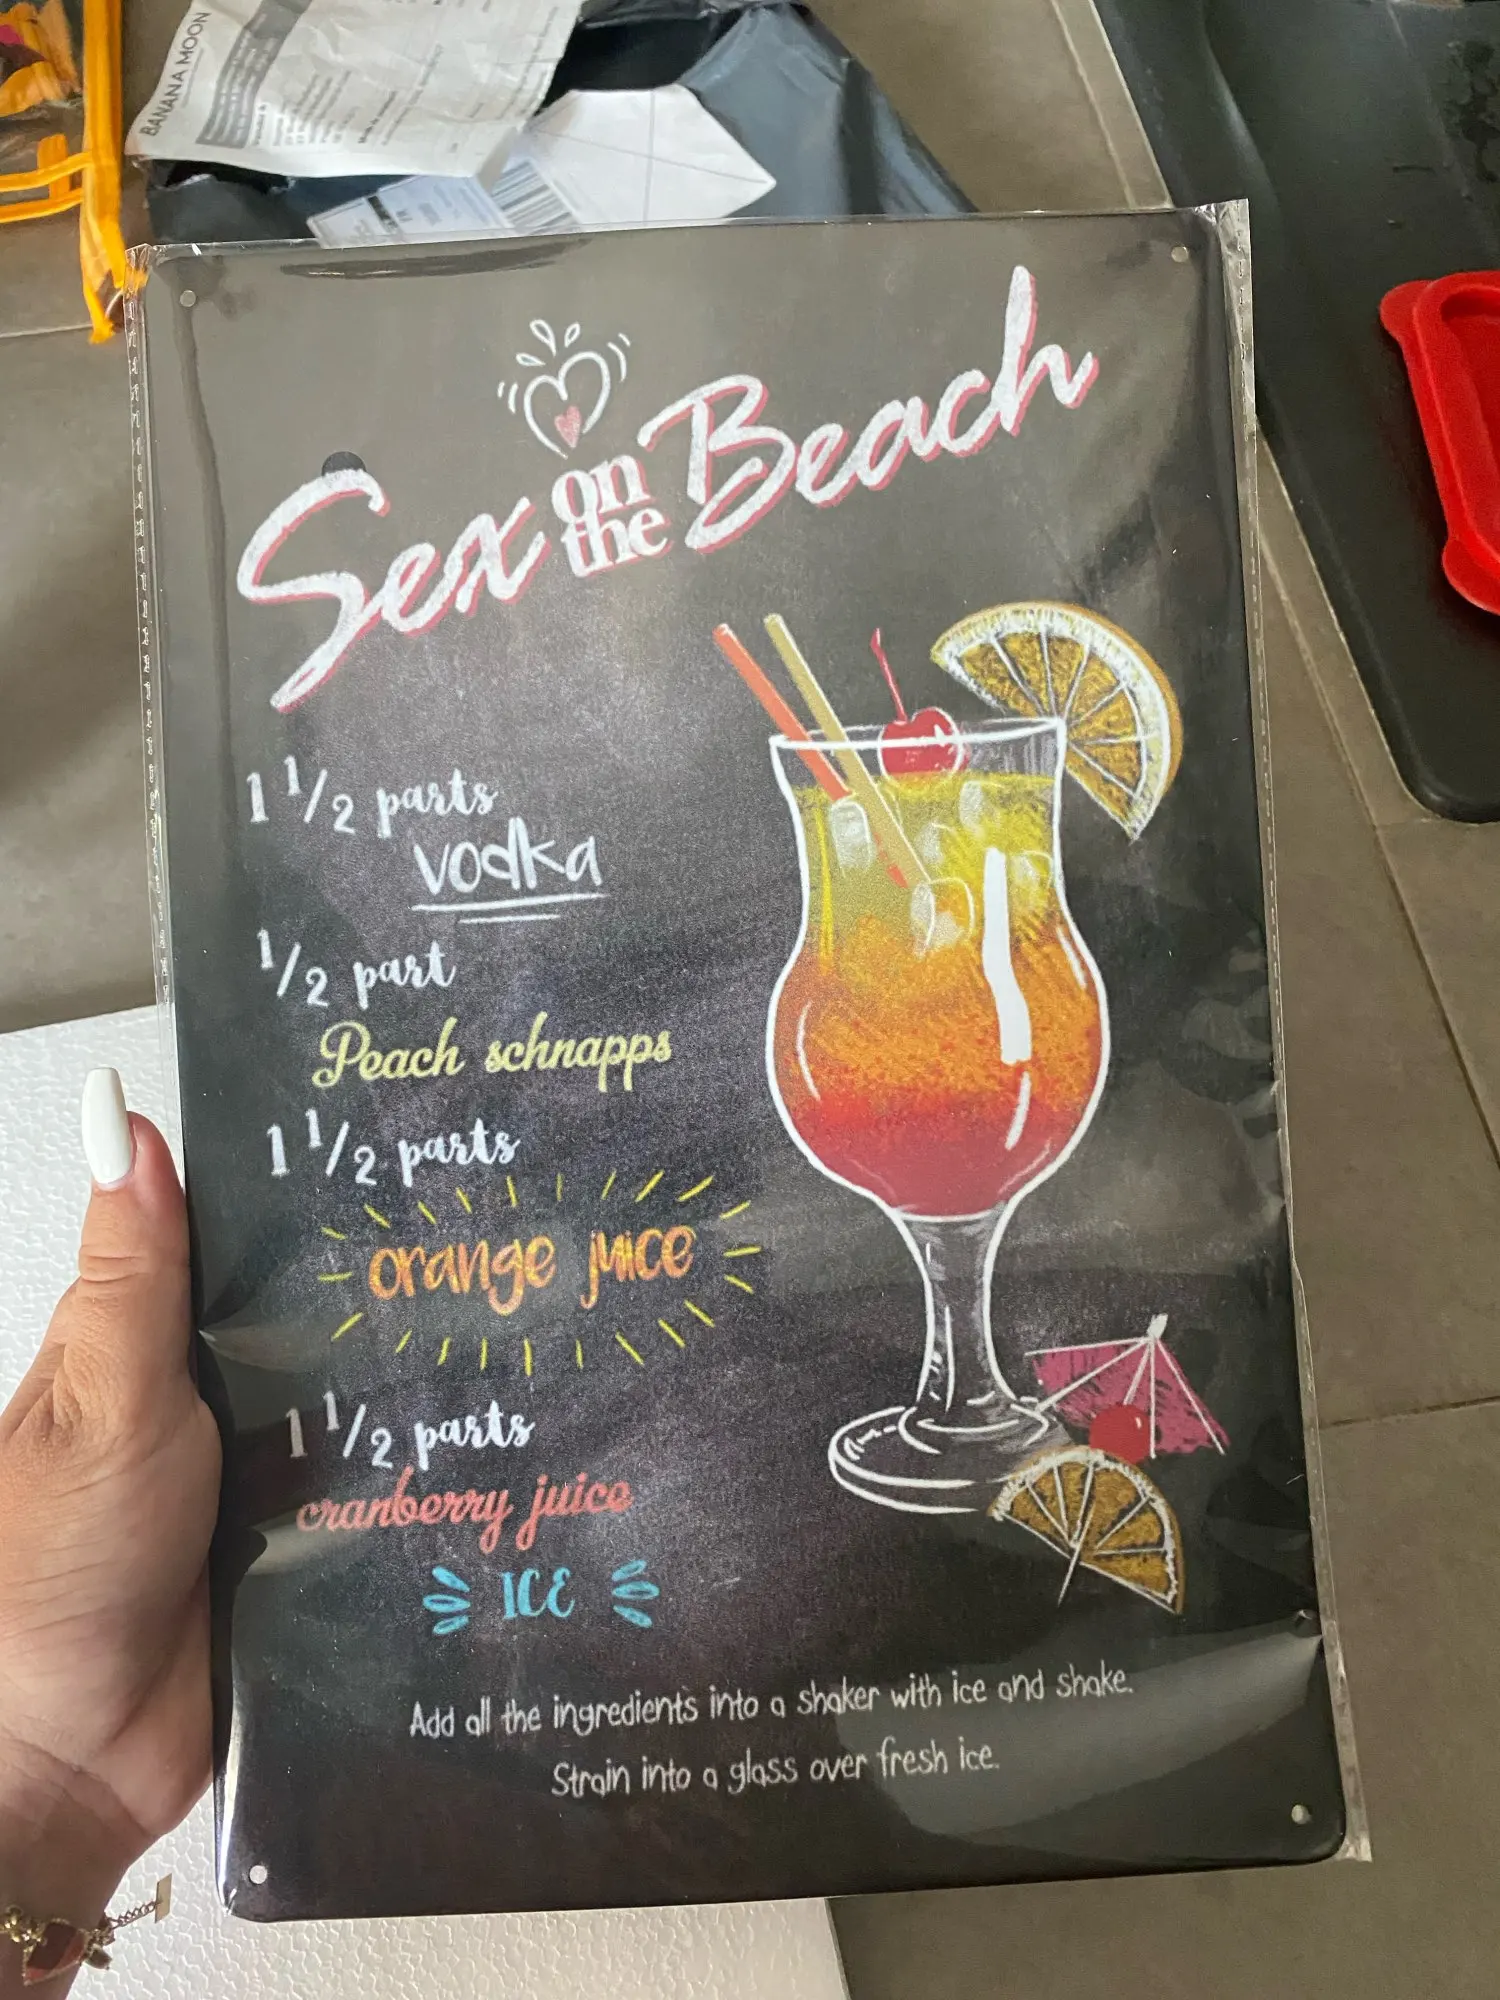 BANANA MOON
Sex on the Beach
1 1/2 parts
vodka
1/2 part
Peach schnapps
1 1/2 parts
orange juice
1 1/2 parts
cranberry juice
ICE
Add all the ingredients into a shaker with ice and shake.
Strain into a glass over fresh ice.